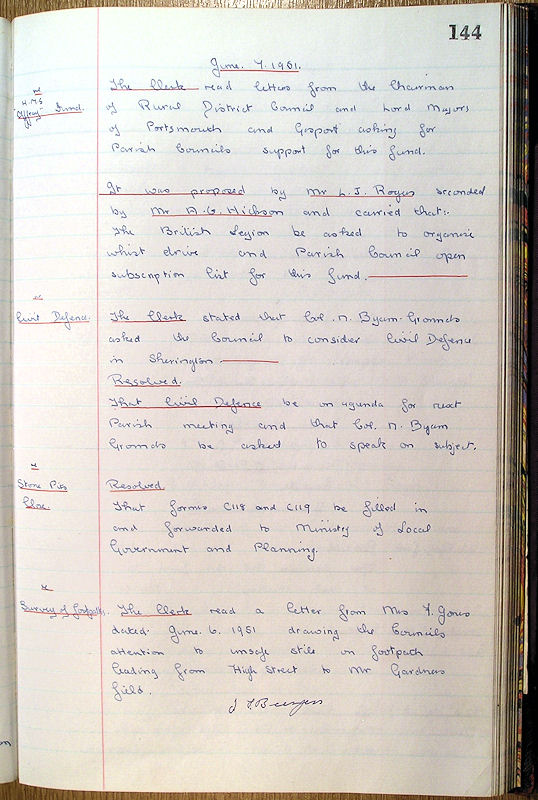 144
June. 7. 1951.
re
H.M.S
"Affray" Fund.
The Clerk read letters from the Chairman
of Rural District Council and Lord Mayors
of Portsmouth and Gosport asking for
Parish Councils support for this fund.
It was proposed by Mr L. J. Rogers seconded
by Mr A. G. Hickson and carried that:-
The British Legion be asked to organize
whist drive and Parish Council open
subscription list for this fund.
re
Civil Defence.
The Clerk stated that Col. N. Byam-Grounds
asked the Council to consider Civil Defence
in Sherington
Resolved.
That Civil Defence be on agenda for next
Parish meeting and that Col. N. Byam
Grounds be asked to speak on subject.
re
Stone Pits
Close.
Resolved
That forms C118 and C119 be filled in
and forwarded to Ministry of Local
Government and Planning.
re
Survey of footpaths.
The Clerk read a letter from Mrs Y. Jones
dated June. 6. 1951 drawing the Councils
attention to unsafe stile on footpath
leading from High Street to Mr Gardners
field.